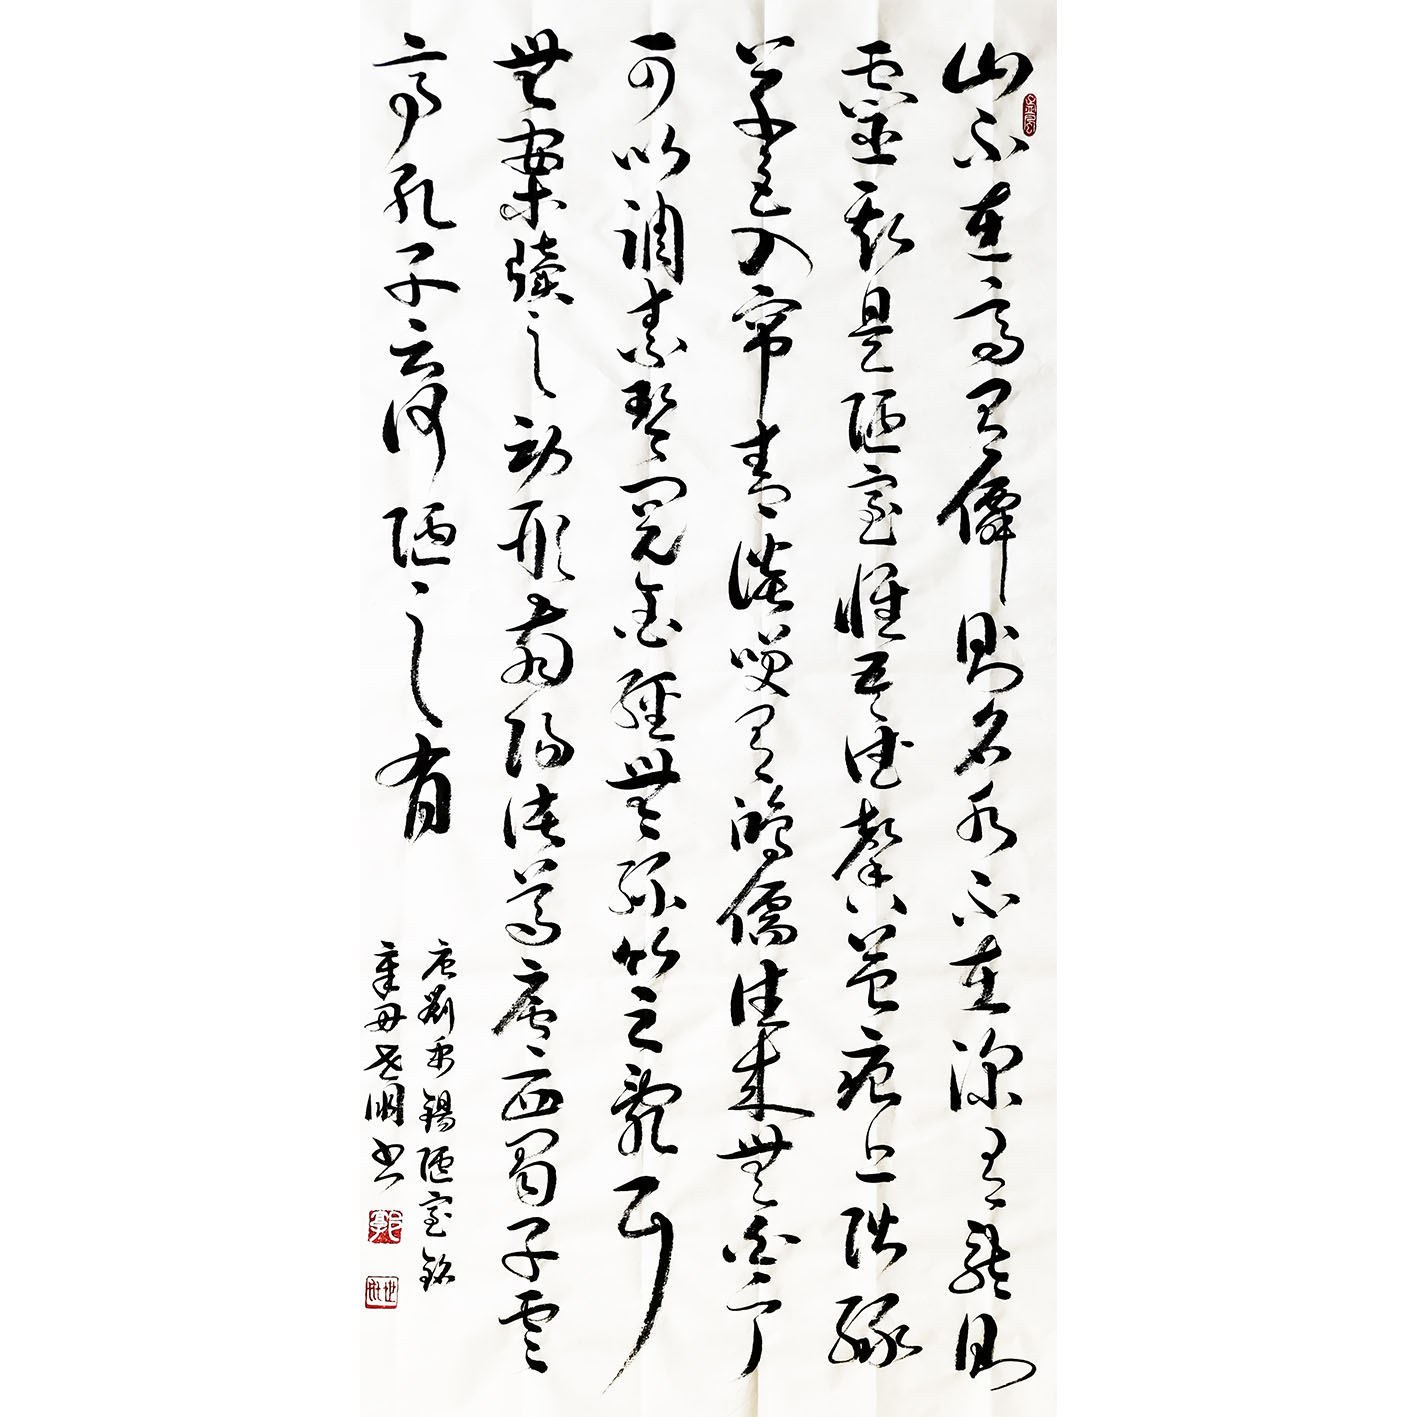 山不在高有僊則名水不在深有龍則
靈斯是陋室惟吾德馨苔痕上階緑
草色入帘青談笑有鴻儒往来無白丁
可以調素琴閲金經無絲竹之亂耳
無案牘之勞形南陽諸葛廬西蜀子雲
亭孔子云何陋之有
唐劉禹錫陋室銘
辛丑世明書